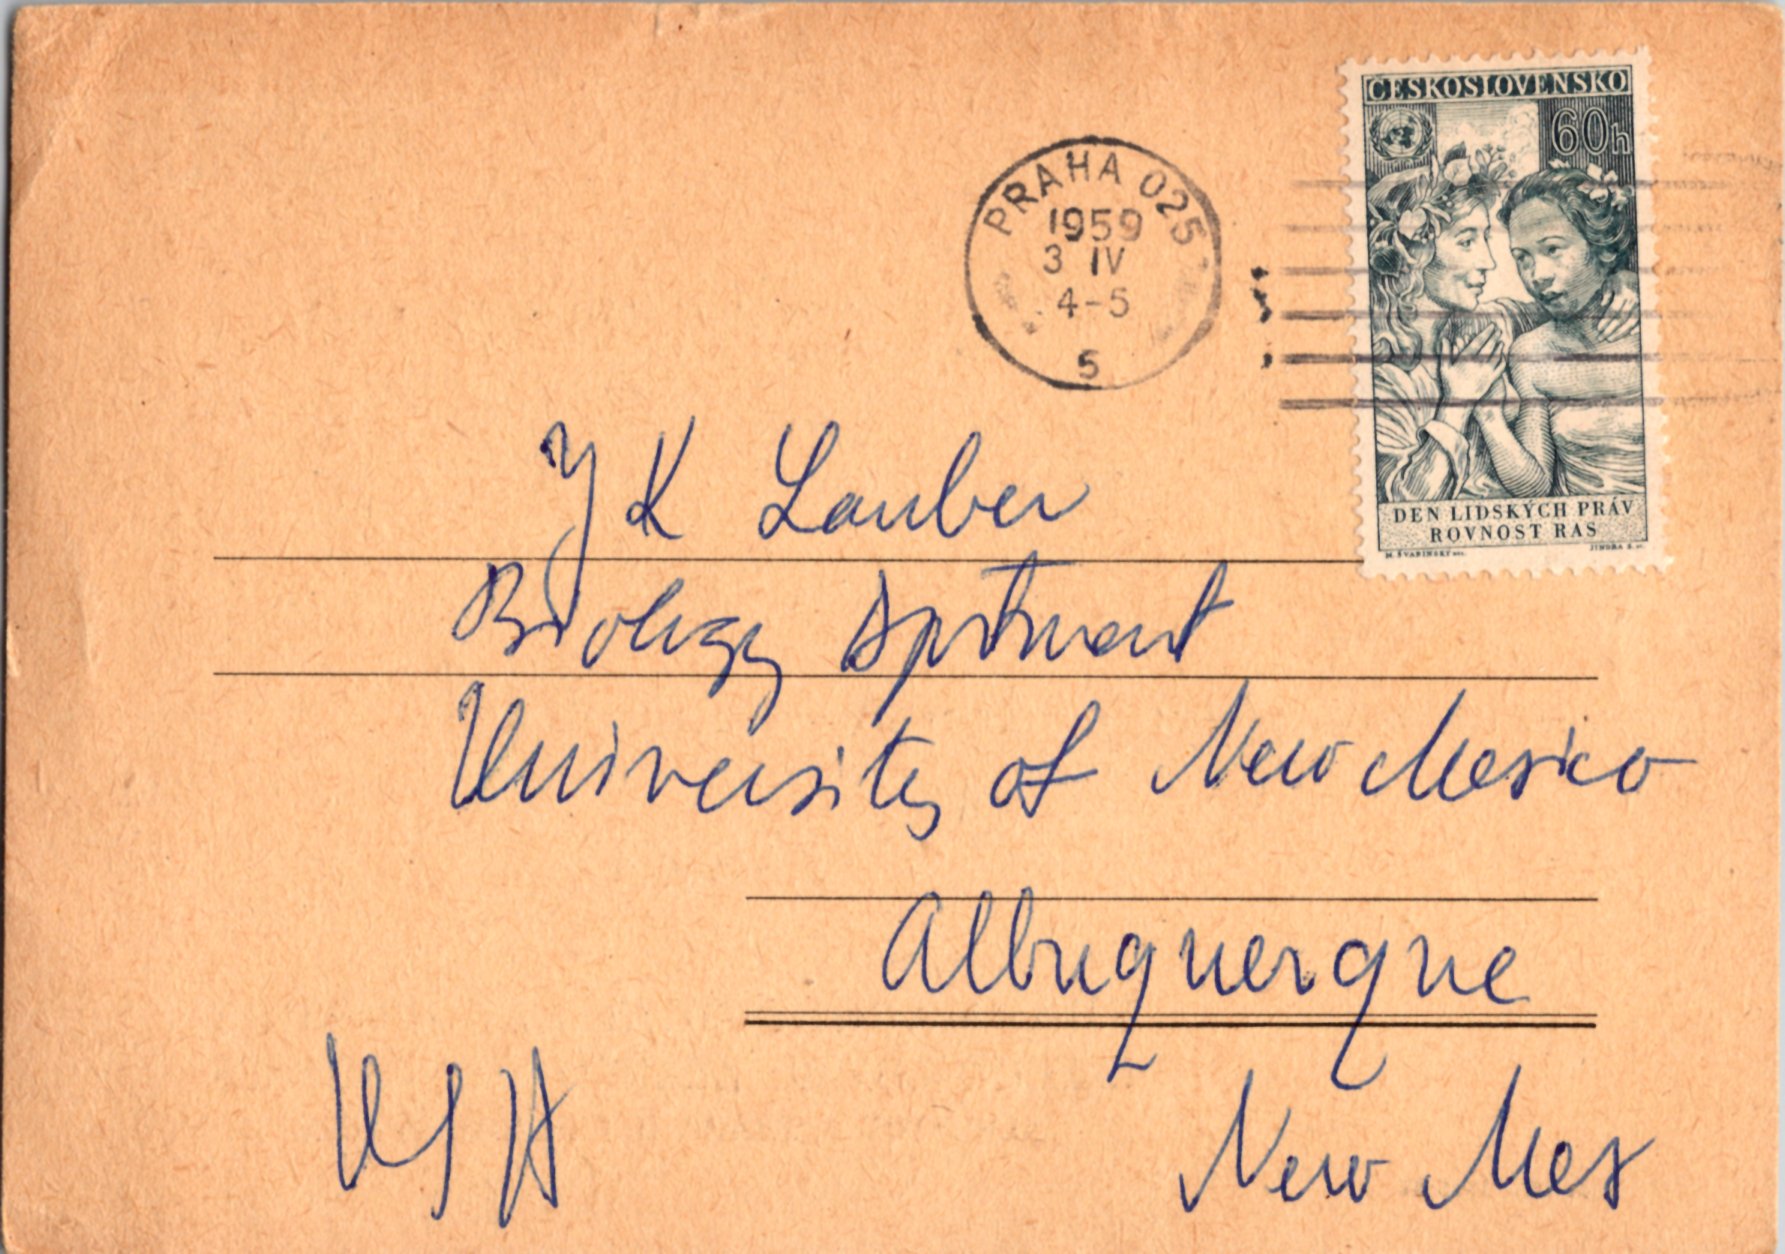 ČESKOSLOVENSKO
60h
PRAHA 025
1959
3 IV
4-5
5
DEN LIDSKÝCH PRÁV
ROVNOST RAS
M. ŠVABINSKÝ
JINDRA S.
J K Lauber
Biology
University of New Mexico
Albuquerque
USA
New Mex